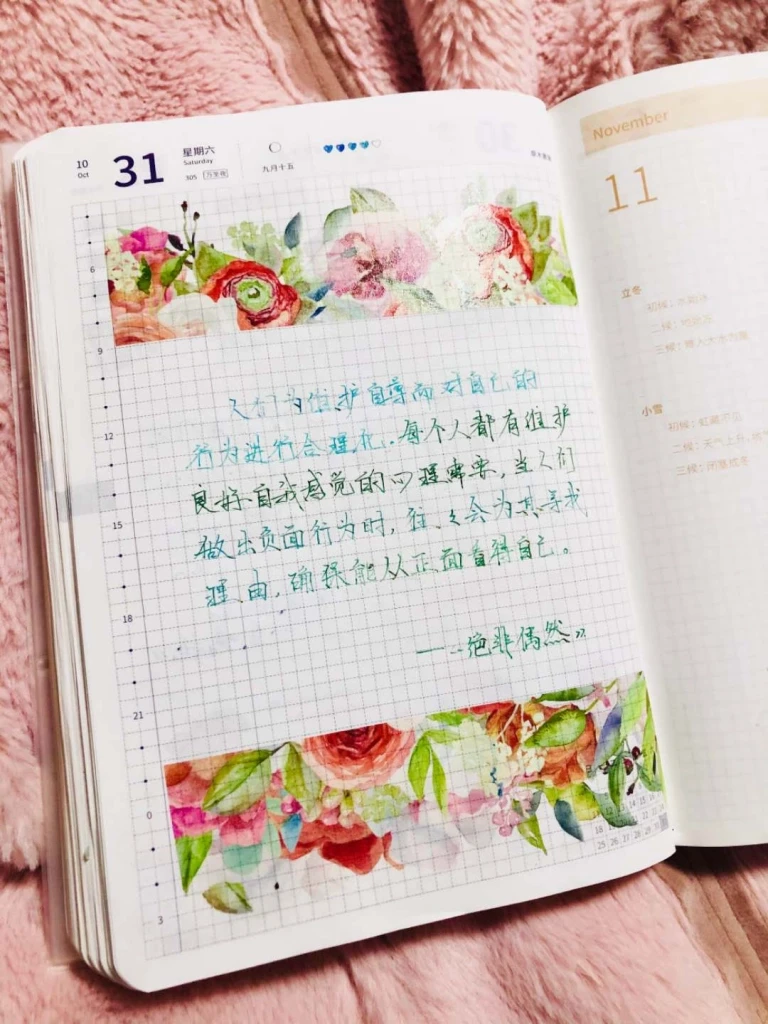 10
Oct
31
星期六
Saturday
305
万圣夜
九月十五
6
9
12
15
18
21
0
3
人们为维护自尊而对自己的
行为进行合理化.每个人都有维护
良好自我感觉的心理需要,当人们
做出负面行为时,往々会为其寻找
理由,确保能从正面看待自己。
——绝非偶然》
November
11
立冬
初候:水始冰
二候:地始冻
三候:雉入大水为蜃
小雪
初候:虹藏不见
二候:天气上升,地气
三候:闭塞成冬